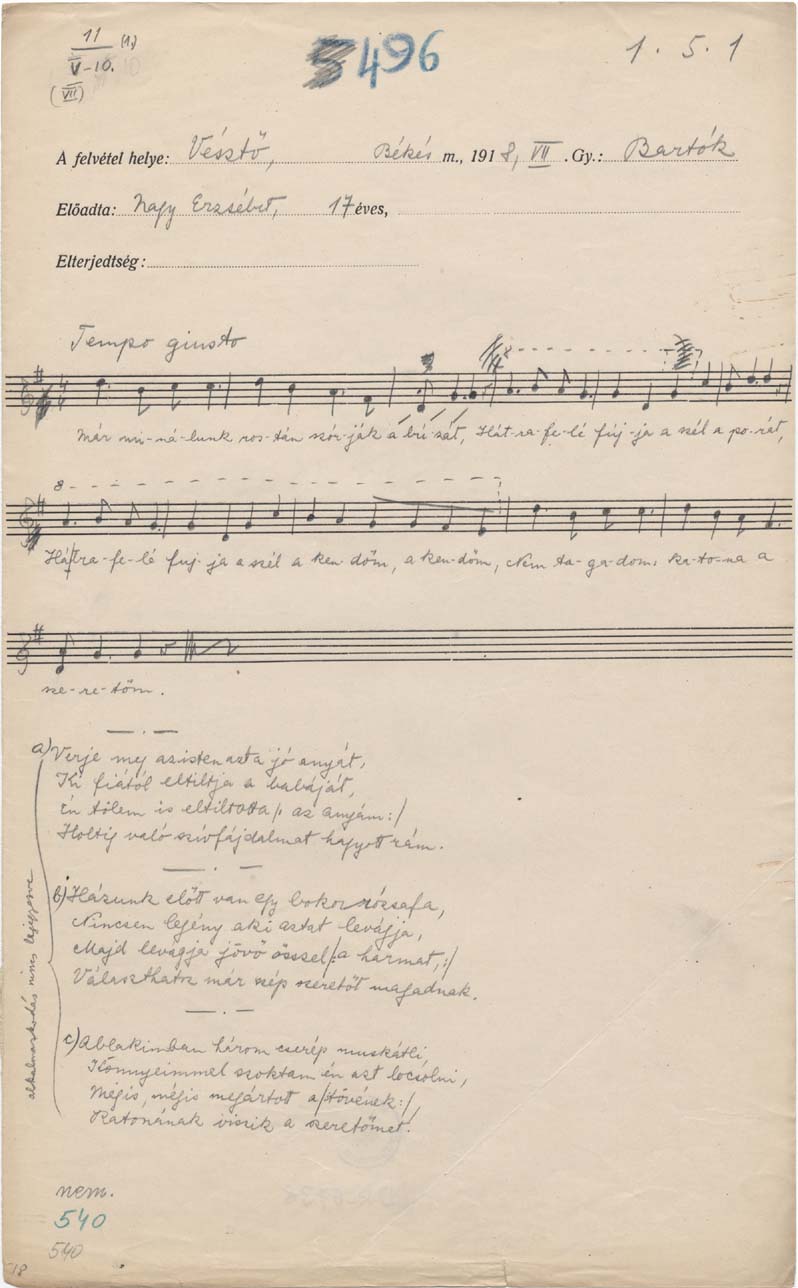 11 (1.)
V-10.
(VII)
496
1. 5. 1
A felvétel helye: Vésztő, Békés m., 1918, VII .Gy.: Bartók
Előadta: Nagy Erzsébet, 17 éves,
Elterjedtség:
Tempo giusto
Már mi-ná-lunk ros-tán szór-ják a bú-zát, Hát-ra-fe-lé fúj-ja a szél a po-rát,
8
Hát-ra-fe-lé fuj-ja a szél a ken-dőm, a ken-dőm, Nem ta-ga-dom, ka-to-na a
sze-re-tőm.
a) Verje meg az isten azt a jó anyát,
Ki fiától eltiltja a babáját,
Én tőlem is eltiltotta /: az anyám :/
Holtig való szívfájdalmat hagyott rám.
b) Házunk előtt van egy bokor rózsafa,
Nincsen legény aki aztat levágja,
Majd levágja jövő ősszel /: a harmat, :/
Választhatsz már szép szeretőt magadnak.
c) Ablakimban három cserép muskátli,
Könnyeimmel szoktam én azt locsolni,
Mégis, mégis megártott a /: tövének :/
Katonának viszik a szeretőmet.
alkalmazkodás nincs lejegyezve
nem.
540
540
18